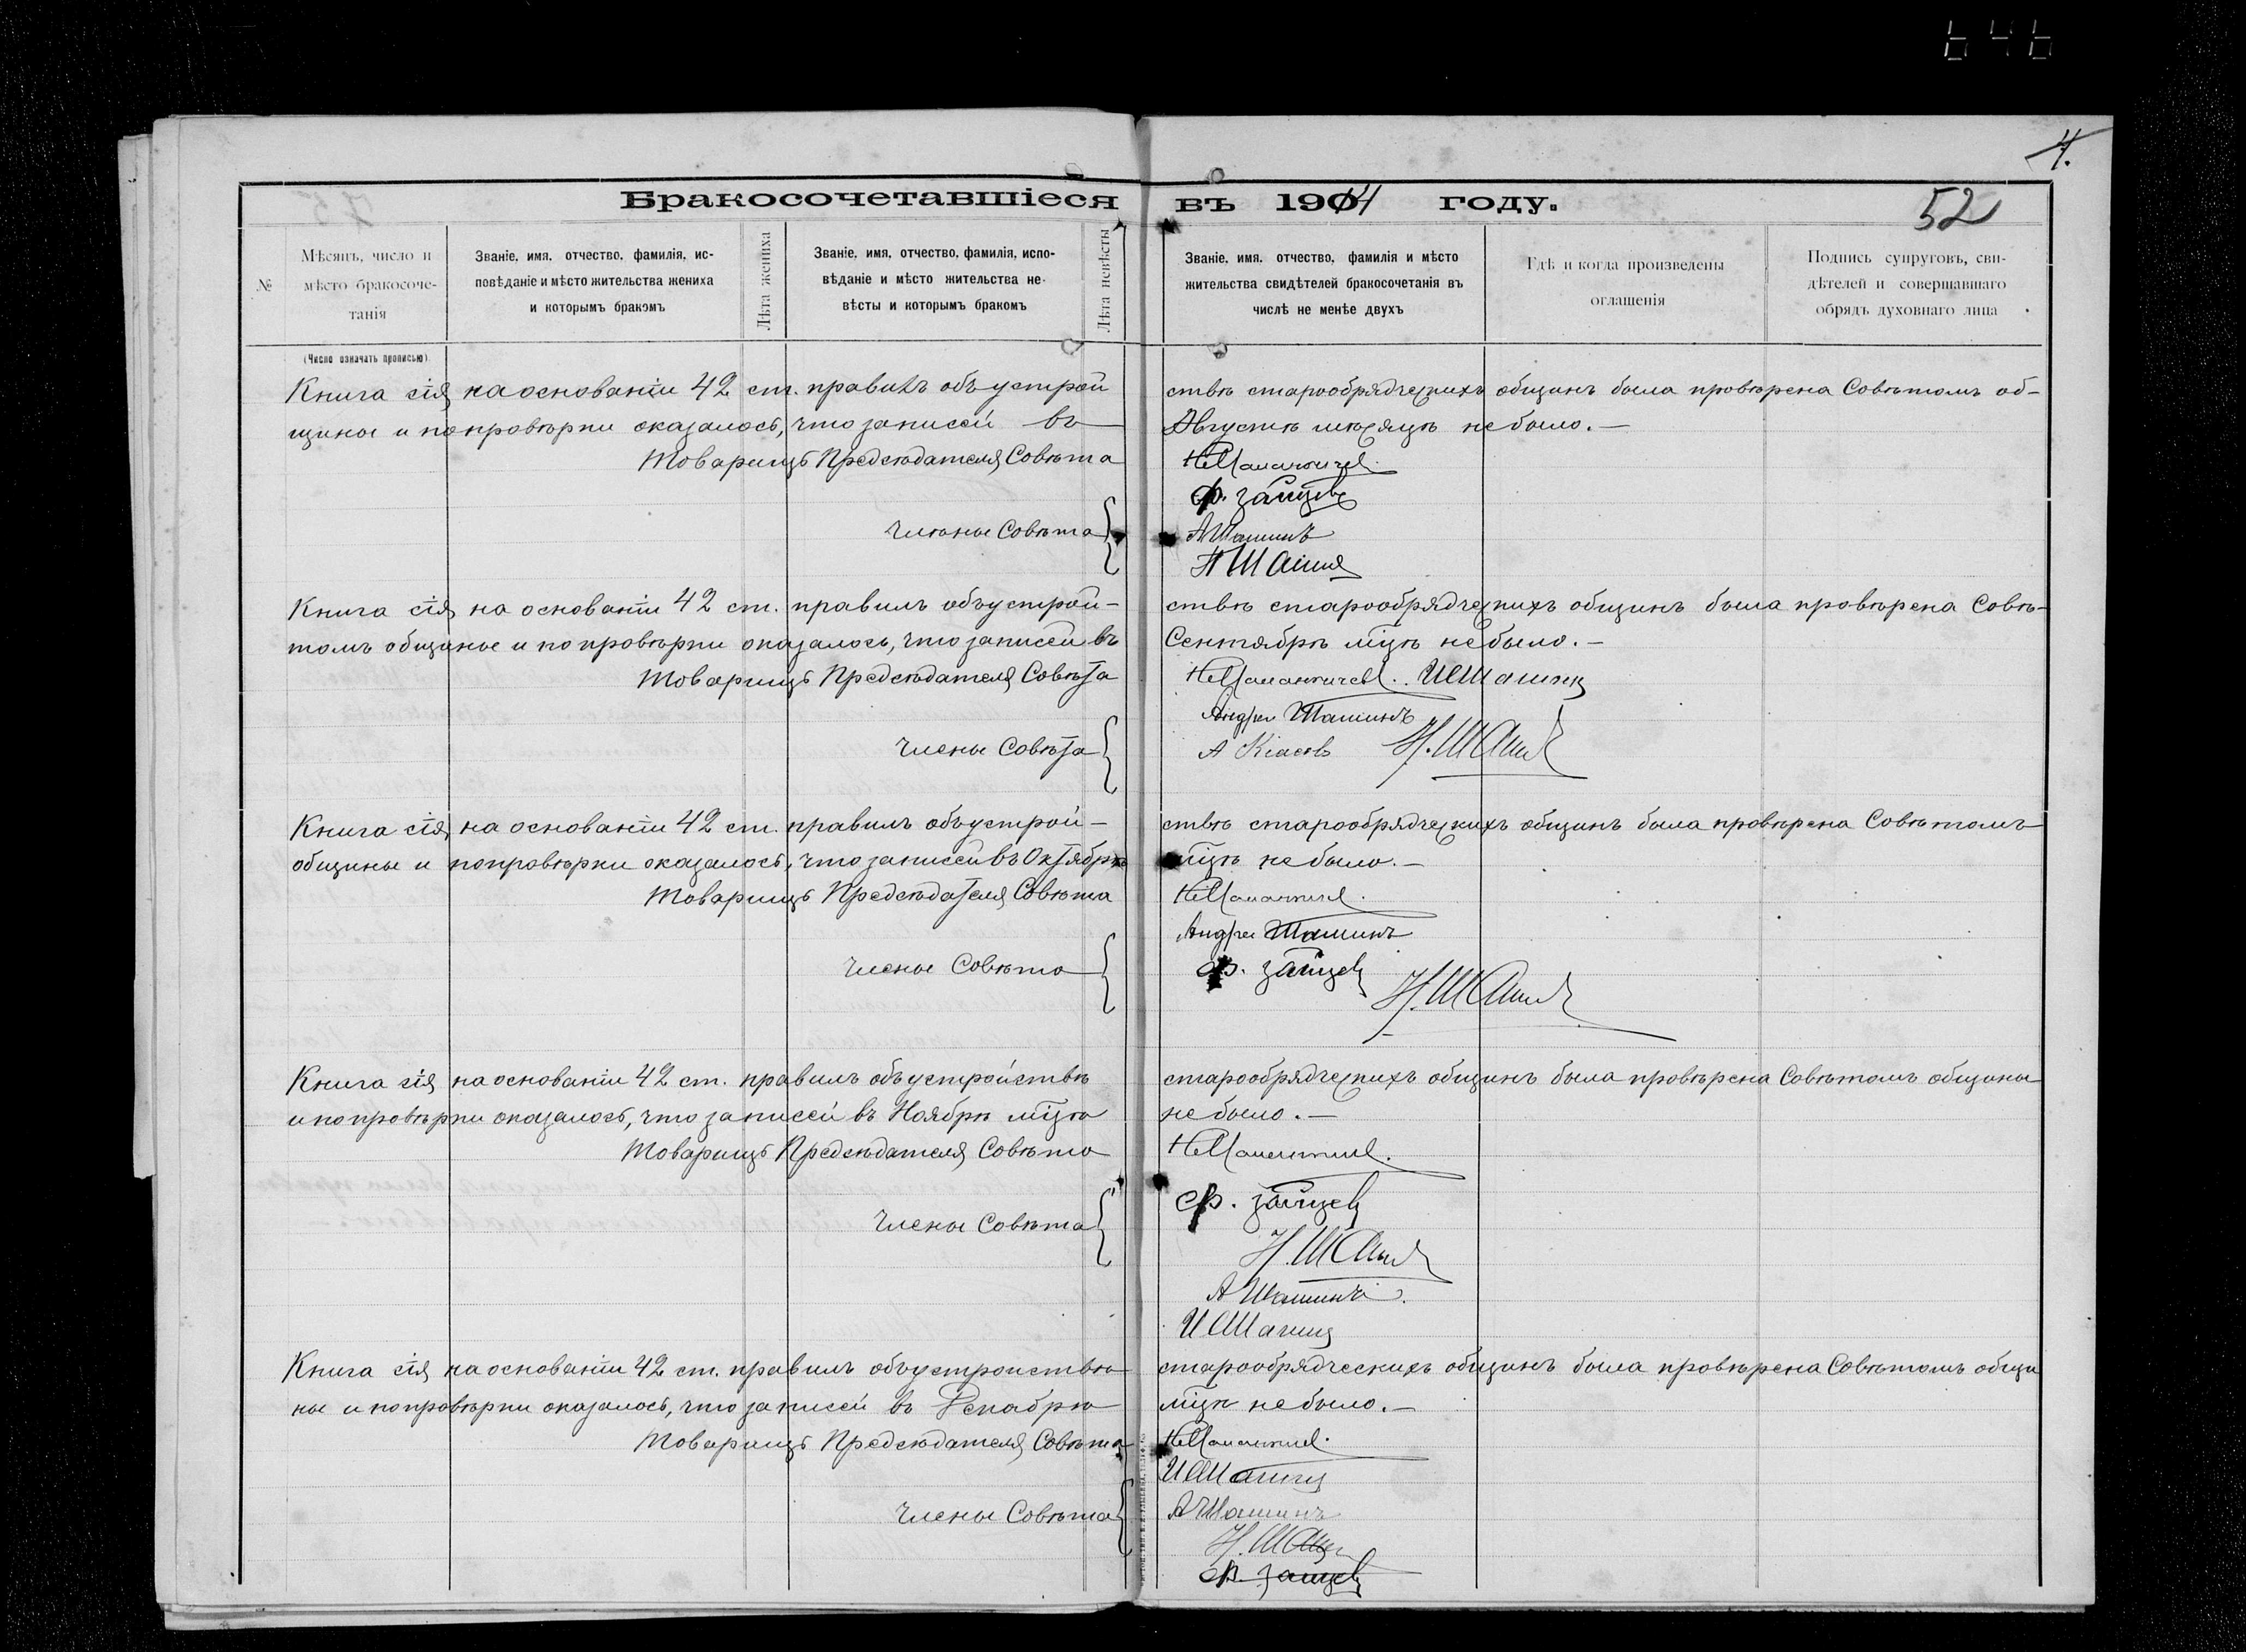 646
4.
Бракосочетавшіеся въ 1914 году.
52
№
Мѣсяцъ, число и
мѣсто бракосоче-
танія
(Число означать прописью).
Званіе, имя, отчество, фамилія, ис-
повѣданіе и мѣсто жительства жениха
и которымъ бракомъ
Лѣта жениха
Званіе, имя, отчество, фамилія, испо-
вѣданіе и мѣсто жительства не-
вѣсты и которымъ бракомъ
Лѣта невѣсты
Званіе, имя, отчество, фамилія и мѣсто
жительства свидѣтелей бракосочетанія въ
числѣ не менѣе двухъ
Гдѣ и когда произведены
оглашенія
Подпись супруговъ, сви-
дѣтелей и совершавшаго
обрядъ духовнаго лица
Книга сія, на основаніи 42 ст. правилъ объ устрой ствѣ старообрядческихъ общинъ была провѣрена Совѣтомъ об-
щины и по провѣрки оказалось, что записей въ Августѣ мѣсяцѣ не было.—
Товарищъ Предсѣдателя Совѣта
Ф. Зайцевъ
Члѣны Совѣта
А Шашинъ
Н Шашин
Книга сія, на основаніи 42 ст. правилъ объ устрой- ствѣ старообрядческихъ общинъ была провѣрена Совѣ-
томъ общины и по провѣрки оказалось, что записей въ Сентябрѣ мѣцѣ не было.—
Товарищъ Предсѣдателя Совѣта
Андрей Шашинъ
Члены Совѣта
Н. Шашин
Книга сія, на основаніи 42 ст. правилъ объ устрой- ствѣ старообрядческихъ общинъ была провѣрена Совѣтомъ
общины и по провѣрки оказалось, что записей въ Октябрѣ мѣцѣ не было.—
Товарищъ Предсѣдателя Совѣта
Андрей Шашинъ
Члены Совѣта
Ф. Зайцев
Н. Шашин
Книга сія, на основаніи 42 ст. правилъ объ устройствѣ старообрядческихъ общинъ была провѣрена Совѣтомъ общины
и по провѣрки оказалось, что записей въ Ноябрѣ мѣцѣ не было.—
Товарищъ Предсѣдателя Совѣта
Ф. Зайцев
Члены Совѣта
Н. Шашин
А Шашинъ.
Книга сія, на основаніи 42 ст. правилъ объ устройствѣ старообрядческихъ общинъ была провѣрена Совѣтомъ общи
ны и по провѣрки оказалось, что записей въ Декабрѣ мѣцѣ не было.—
Товарищъ Предсѣдателя Совѣта
Члены Совѣта
А Шашинъ
Н. Шашин
Ф. Зайцев